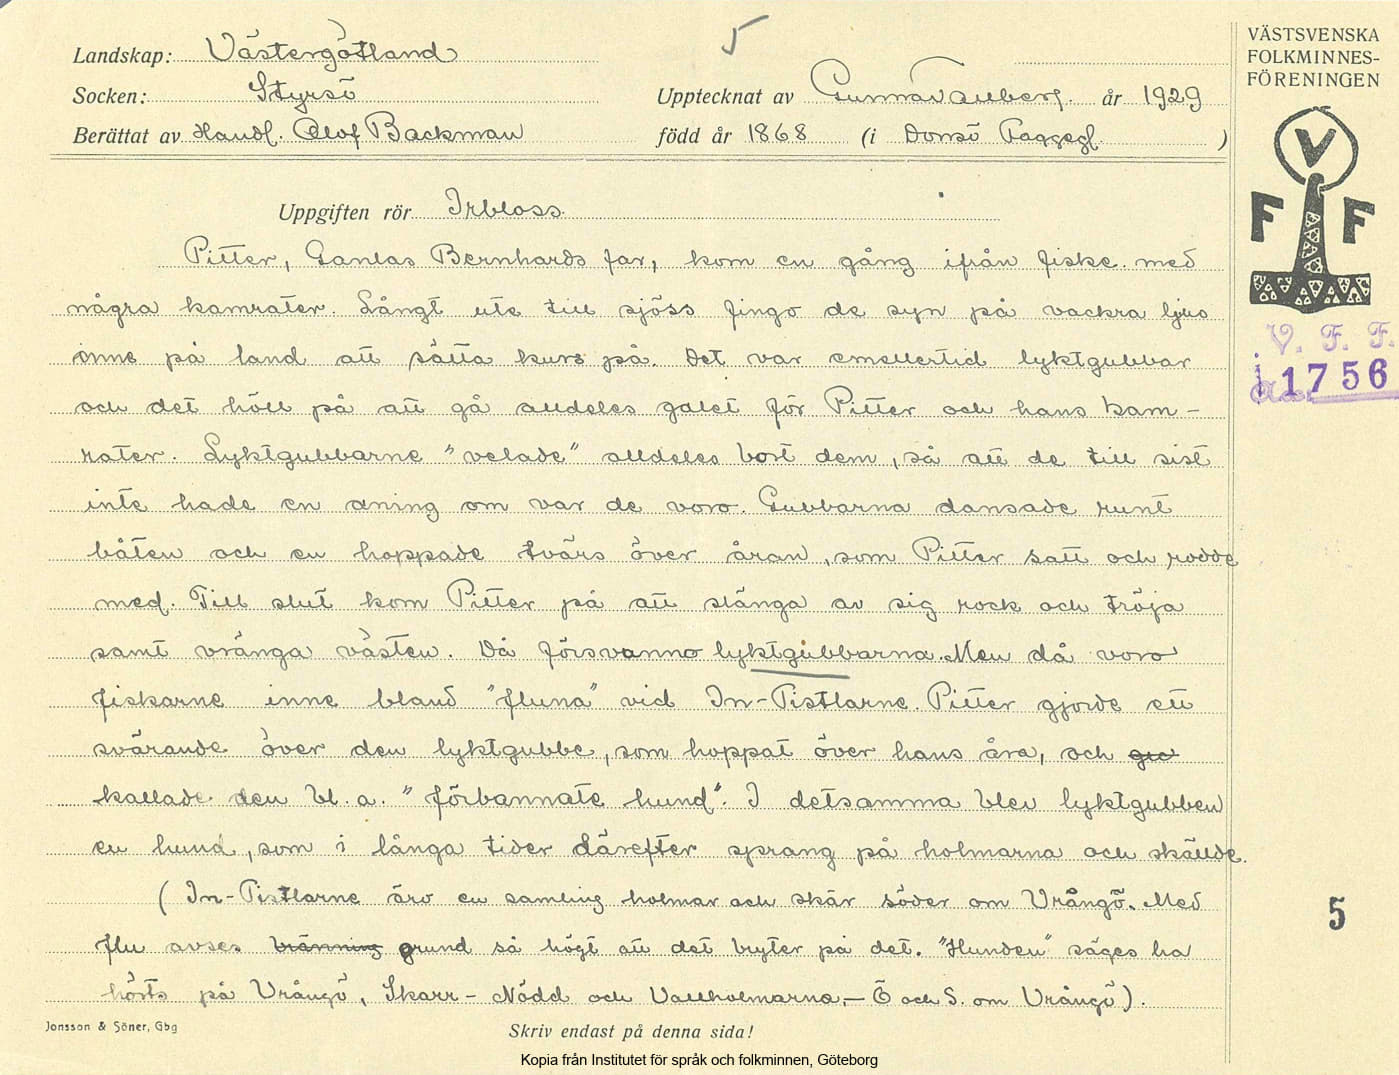 5
Landskap: Västergötland
Socken: Styrsö
Upptecknat av Gunnar Vallberg. år 1929
Berättat av Handl. Olof Backman född år 1868 (i Donsö Faggegl. )
VÄSTSVENSKA
FOLKMINNES-
FÖRENINGEN
V
F F
V. F. F.
1756
Uppgiften rör Irbloss.
Pitter, Gamlas Bernhards far, kom en gång ifrån fiske med
några kamrater. Långt ute till sjöss fingo de syn på vackra ljus
inne på land att sätta kurs på. Det var emellertid lyktgubbar
och det höll på att gå alldeles galet för Pitter och hans kam-
rater. Lyktgubbarne "velade" alldeles bort dem, så att de till sist
inte hade en aning om var de voro. Gubbarna dansade runt
båten och en hoppade tvärs över åran, som Pitter satt och rodde
med. Till slut kom Pitter på att slänga av sig rock och tröja
samt vränga västen. Då försvanno lyktgubbarna. Men då voro
fiskarne inne bland "fluna" vid In-Tistlarne. Pitter gjorde ett
svärande över den lyktgubbe, som hoppat över hans åra, och
kallade den bl. a. "förbannate hund". I detsamma blev lyktgubben
en hund, som i långa tider därefter sprang på holmarna och skällde.
(In-Tistlarne äro en samling holmar och skär söder om Vrångö. Med
flu avses bränning grund så högt att det bryter på det. "Hunden" säges ha
hörts på Vrångö, Skarr-Nödd och Vallholmarna,- Ö och S. om Vrångö).
5
Jonsson & Söner, Gbg
Skriv endast på denna sida!
Kopia från Institutet för språk och folkminnen, Göteborg